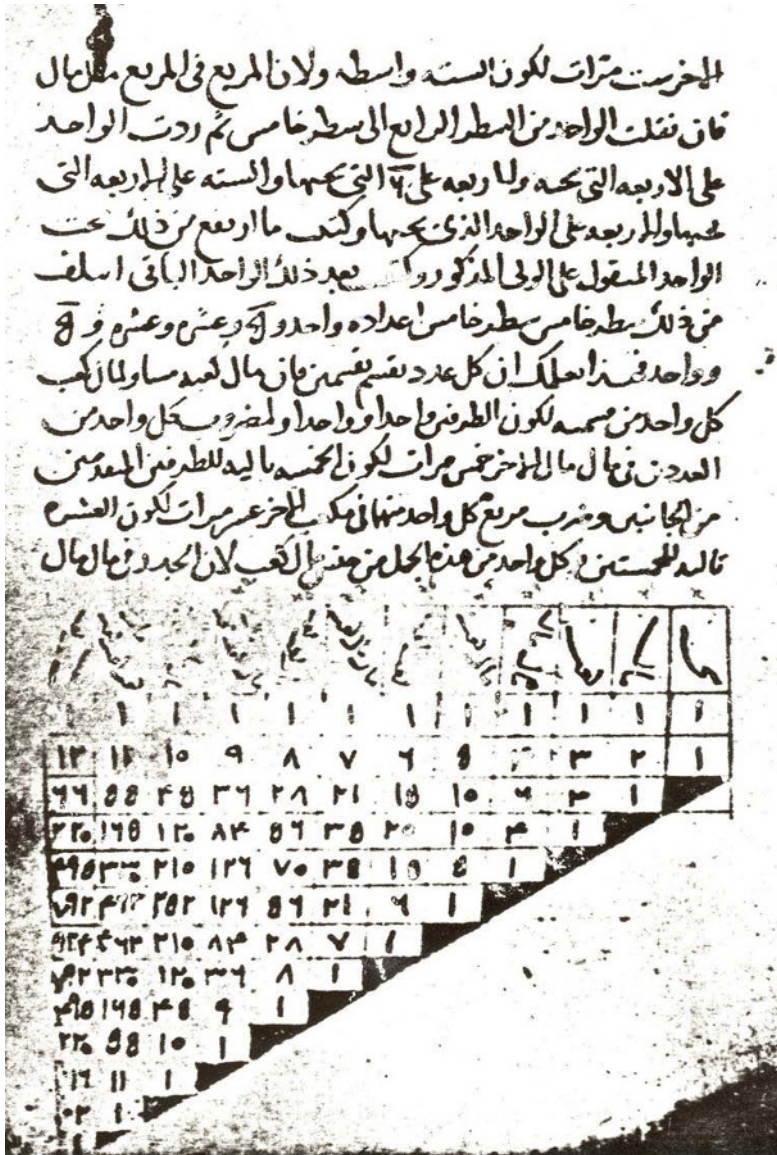 الاخر ست مرات لكون السته واسطه ولان المربع فى المربع مثل مال
فان نقلت الواحد من السطر الرابع الى سطر خامس ثم زدت الواحد
على الاربعه التى تحته والاربعه على ٦ التى تحتها والسته على الاربعه التى
تحتها والاربعه على الواحد الذى تحتها وكتبت ما ارتفع من ذلك تحت
الواحد المنقول على الولى المذكور وكتبت بعد ذلك الواحد الباقى ائتلف
من ذلك سطر خامس اعداده واحد و ٥ وعشره وعشره و ٥
وواحد فهذا يعلمك ان كل عدد يقسم بقسمين فان مال كعبه مساو لمال كعب
كل واحد من قسميه لكون الطرفين واحدا وواحدا ولمضروب كل واحد من
العددين فى مال مال الاخر خمس مرات لكون الخمسه تاليه للطرفين المتقدمين
من الجانبين وضرب مربع كل واحد منهما فى مكعب الاخر عشر مرات لكون العشره
تاليه للخمستين وكل واحد من هذه الجمل من جنس مال الكعب لان الجذر فى مال مال
١ ١ ١ ١ ١ ١ ١ ١ ١ ١ ١
١ ٢ ٣ ٥ ٦ ٧ ٨ ٩ ١٠ ١١ ١٢
١ ٣ ٦ ١٠ ١٥ ٢١ ٢٨ ٣٦ ٤٥ ٥٥ ٦٦
١ ٤ ١٠ ٢٠ ٣٥ ٥٦ ٨٤ ١٢٠ ١٦٥ ٢٢٠
١ ٥ ١٥ ٣٥ ٧٠ ١٢٦ ٢١٠ ٣٣٠ ٤٩٥
١ ٦ ٢١ ٥٦ ١٢٦ ٢٥٢ ٤٦٢ ٧٩٢
١ ٧ ٢٨ ٨٤ ٢١٠ ٤٦٢ ٩٢٤
١ ٨ ٣٦ ١٢٠ ٣٣٠ ٧٩٢
١ ٩ ٤٥ ١٦٥ ٤٩٥
١ ١٠ ٥٥ ٢٢٠
١ ١١
١
١